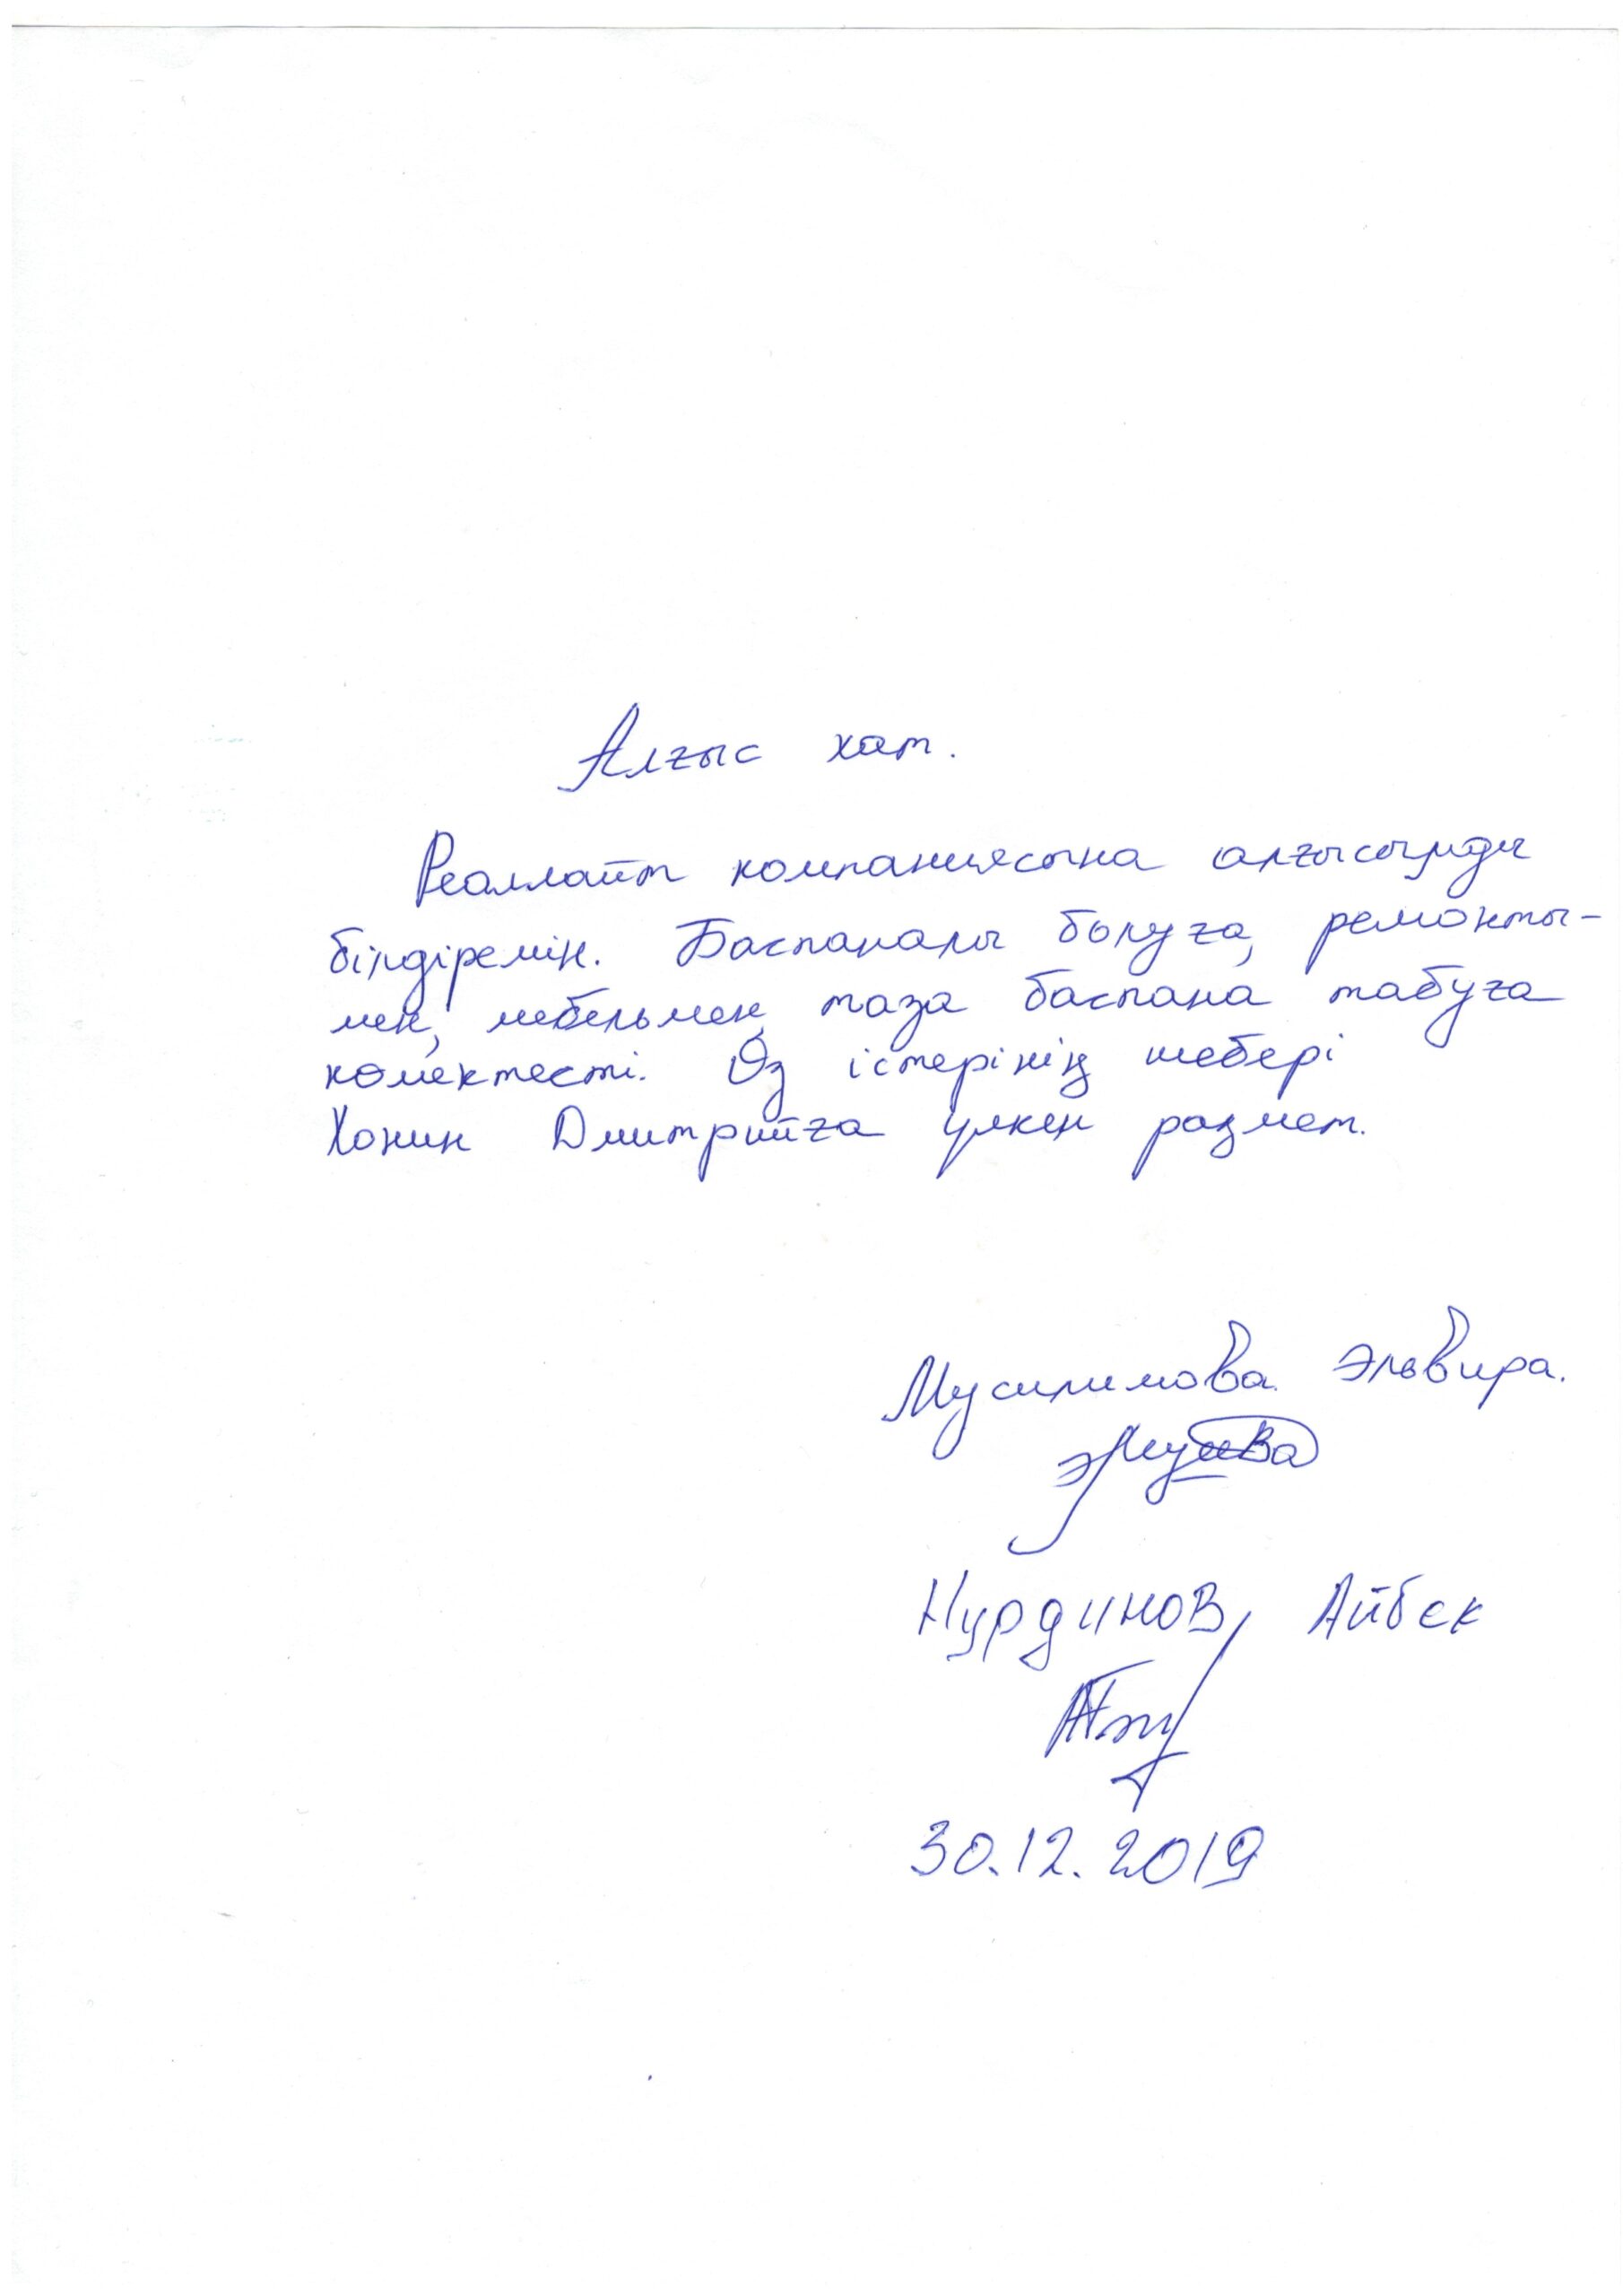 Алғыс хат.
Реаллайт компаниясына алғысымды
білдіремін. Баспаналы болуға, ремонты-
мен, мебельмен таза баспана табуға
көмектесті. Өз істерінің шебері
Хонин Дмитрийға үлкен рахмет.
Мусилимова Эльвира.
Нурдинов Айбек
30.12.2019